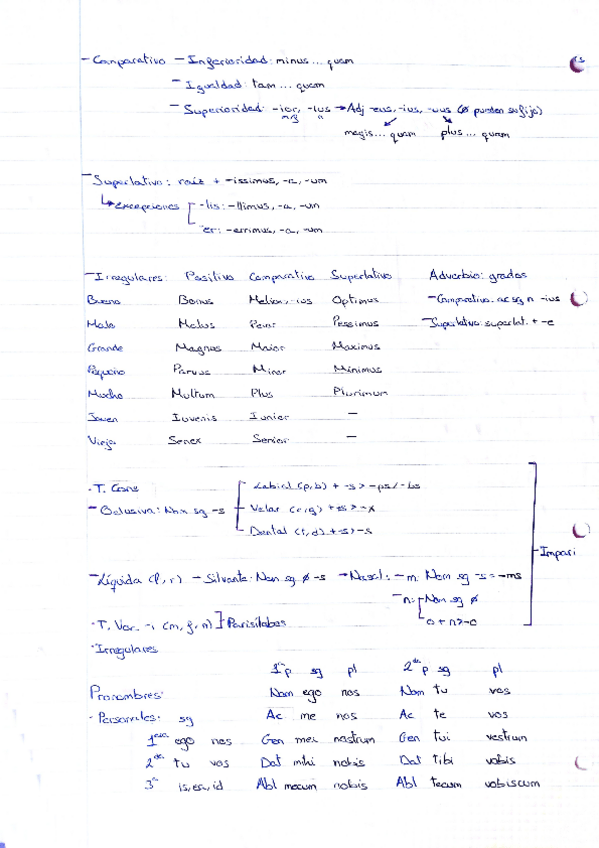 - Comparativo - Inferioridad: minus... quam
- Igualdad: tam... quam
- Superioridad: -ior, -ius → Adj -eus, -ius, -uus (∅ pueden sufijo)
m/f n
magis... quam plus... quam
- Superlativo: raíz + -issimus, -a, -um
↳ excepciones [ -lis: -llimus, -a, -um
-er: -errimus, -a, -um
- Irregulares: Positivo Comparativo Superlativo Adverbio: grados
Bueno Bonus Melior, -ius Optimus - Comparativo: ac sg n -ius
Malo Malus Peior Pessimus - Superlativo: superlat. + -e
Grande Magnus Maior Maximus
Pequeño Parvus Minor Minimus
Mucho Multum Plus Plurimum
Joven Iuvenis Iunior -
Viejo Senex Senior -
· T. Cons
- Oclusiva: Nom sg -s [ Labial (p, b) + -s > -ps/-bs
Velar (c, g) + -s > -x
Dental (t, d) + -s > -s
- Impari
- Líquida (l, r) - Silvante: Nom sg ∅ -s → Nasal: - m: Nom sg -s = -ms
- n: [ Nom sg ∅
o + n > -o
· T. Voc. -i (m, f, n) ] Parisílabos
· Irregulares
1ª p sg pl 2ª p sg pl
Pronombres: Nom ego nos Nom tu vos
· Personales: sg Ac me nos Ac te vos
1ª ego nos Gen mei nostrum Gen tui vestrum
2ª tu vos Dat mihi nobis Dat tibi vobis
3ª is, ea, id Abl mecum nobis Abl tecum vobiscum